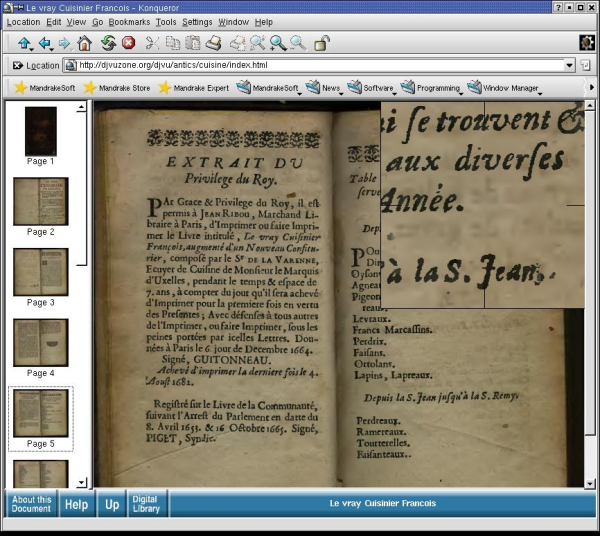 Le vray Cuisinier Francois - Konqueror
Location Edit View Go Bookmarks Tools Settings Window Help
Location http://djvuzone.org/djvu/antics/cuisine/index.html
MandrakeSoft Mandrake Store Mandrake Expert MandrakeSoft News Software Programming Window Manager
Page 1
Page 2
Page 3
Page 4
Page 5
EXTRAIT DU
Privilege du Roy.
PAr Grace & Privilege du Roy, il est
permis à JEAN RIBOU, Marchand Li-
braire à Paris, d'Imprimer ou faire Impri-
mer le Livre intitulé, Le vray Cuisinier
François, augmenté d'un Nouveau Confitu-
rier, composé par le Sr DE LA VARENNE,
Ecuyer de Cuisine de Monsieur le Marquis
d'Uxelles, pendant le temps & espace de
7. ans, à compter du jour qu'il sera achevé
d'Imprimer pour la premiere fois en vertu
des Presentes; Avec défenses à tous autres
de l'Imprimer, ou faire Imprimer, sous les
peines portées par icelles Lettres. Don-
nées à Paris le 6. jour de Decembre 1664.
Signé, GUITONNEAU.
Achevé d'imprimer la derniere fois le 4.
Aoust 1682.
Registré sur le Livre de la Communauté,
suivant l'Arrest du Parlement en datte du
8. Avril 1653. & 16 Octobre 1665. Signé,
PIGET, Syndic.
Table
serve
Dep
POu
Din
Oyson
Agneau
Pigeon
reaux
Levraux.
Francs Marcassins.
Perdrix.
Faisans.
Ortolans.
Lapins, Lapreaux.
Depuis la S. Jean jusqu'à la S. Remy.
Perdreaux.
Ramereaux.
Tourterelles.
Faisanteaux.
i se trouvent &
aux diverses
Année.
à la S. Jean,
About this Document Help Up Digital Library Le vray Cuisinier Francois